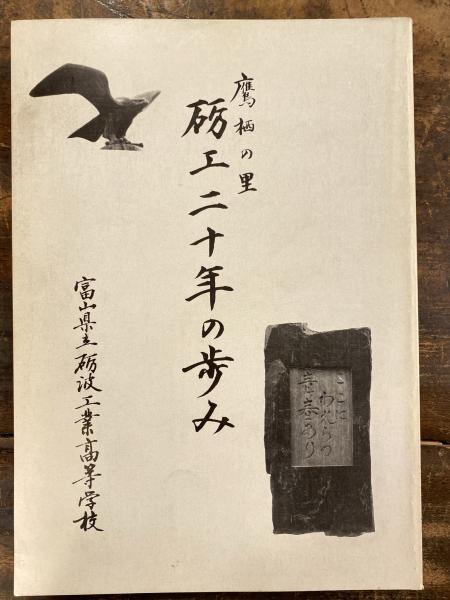 鷹栖の里
砺工二十年の歩み
富山県立砺波工業高等学校
ここに
われらの
青春あり